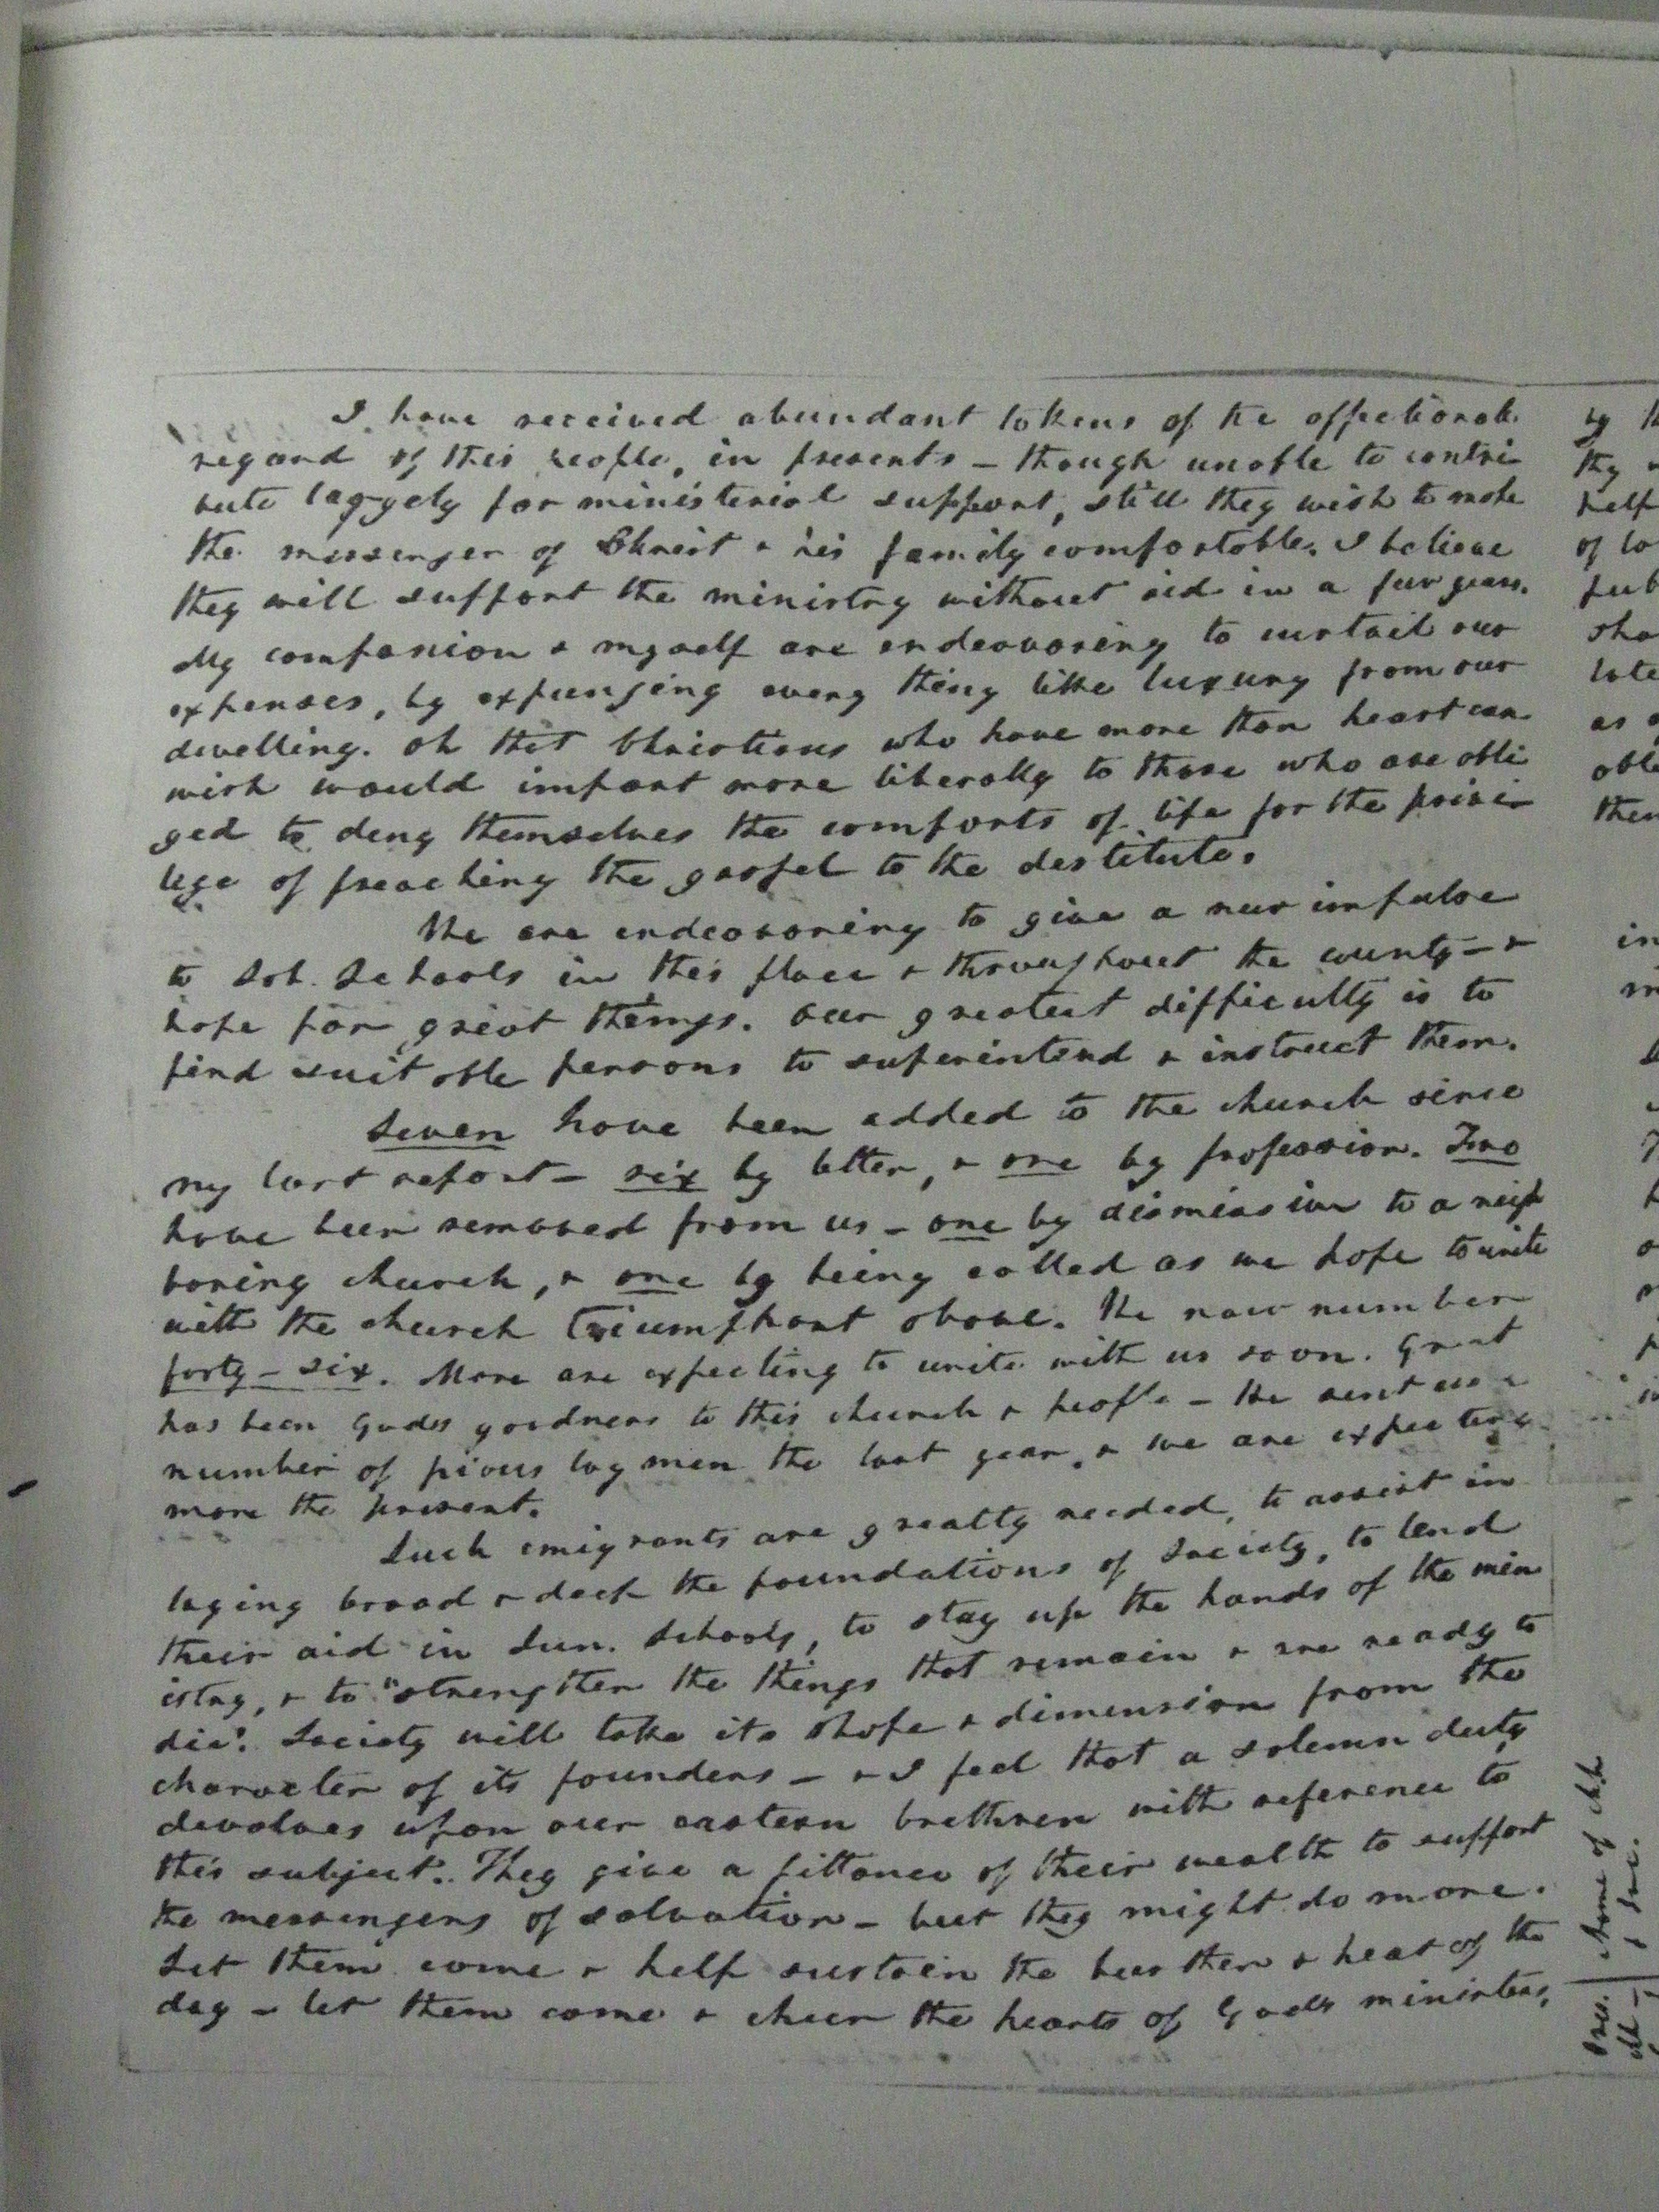 I have received abundant tokens of the affectionate
regard of this people, in presents – though unable to contri
bute largely for ministerial support, still they wish to make
the messenger of Christ & his family comfortable. I believe
they will support the ministry without aid in a few years.
My companion & myself are endeavoring to curtail our
expenses, by expunging every thing like luxury from our
dwelling. Oh that Christians who have more than heart can
wish would impart more liberally to those who are obli
ged to deny themselves the comforts of life for the privi
lege of preaching the gospel to the destitute.
We are endeavoring to give a new impulse
to Sab. Schools in this place & throughout the county – &
hope for great things. Our greatest difficulty is to
find suitable persons to superintend & instruct them.
Seven have been added to the church since
my last report – six by letter, & one by profession. Two
have been removed from us – one by dismission to a neigh
boring church, & one by being called as we hope to unite
with the church triumphant above. We now number
forty-six. More are expecting to unite with us soon. Great
has been God's goodness to this church & people – He sent us a
number of pious laymen the last year, & we are expecting
more the present.
Such emigrants are greatly needed, to assist in
laying broad & deep the foundations of Society, to lend
their aid in Sun. Schools, to stay up the hands of the min
istry, & to "strengthen the things that remain & are ready to
die". Society will take its shape & dimension from the
character of its founders – & I feel that a solemn duty
devolves upon our eastern brethren with reference to
this subject. They give a pittance of their wealth to support
the messengers of salvation – but they might do more.
Let them come & help sustain the burthen & heat of the
day – let them come & cheer the hearts of God's ministers,